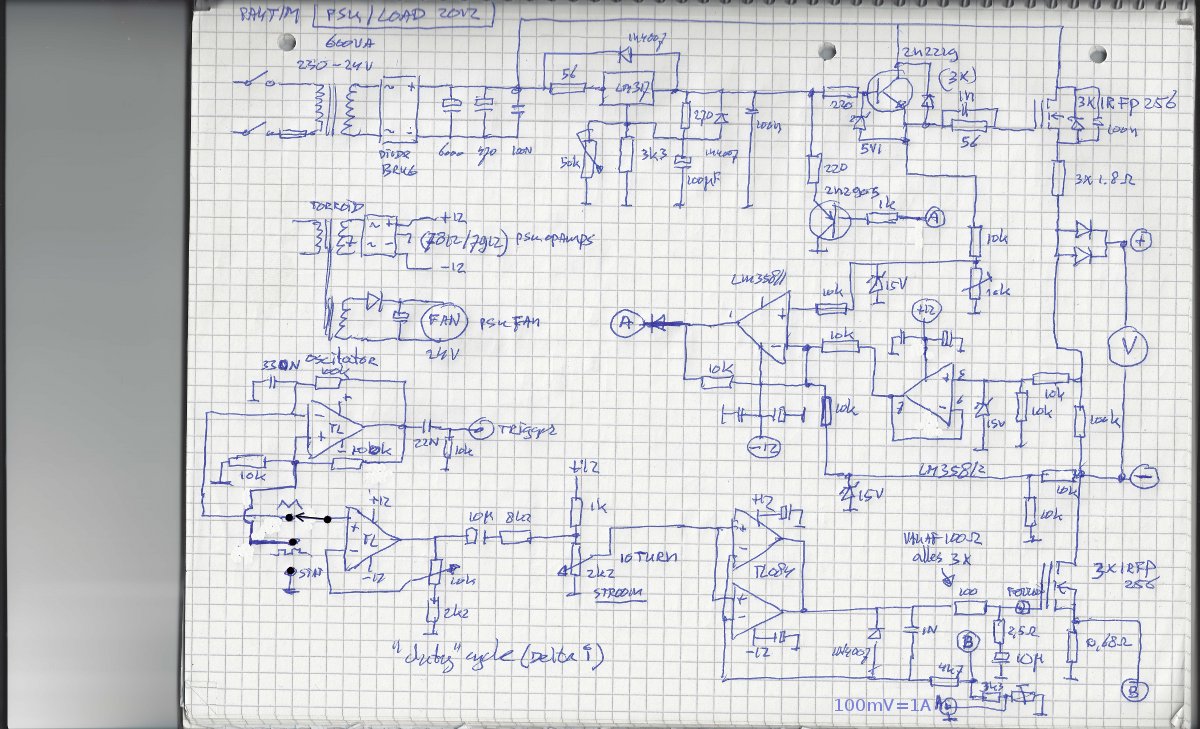 PSU/LOAD 20V2
600VA
230-24V
1N4007
56
LM317
2N2219
(3X)
1N
3X IRFP256
100N
220
5V1
56
270
100N
1N4007
50k
3k3
100µF
DIODE
BRUG
470
100N
3X 1.8Ω
220
2N2905
1k
A
+
10k
10k
+12
(7812/7912) PSU opAmps
-12
FAN
PSU FAN
24V
LM358/1
15V
10k
10k
+12
A
1
V
10k
10k
5
6
7
10k
10k
15V
100k
-12
LM358/2
15V
10k
10k
-
Oscilator
330N
100k
TL
22N
10k
Trigger
10k
+12
TL
-12
10µ
8k2
10k
2k2
+12
1k
2k2
10 TURN
STROOM
+12
TL084
-12
VANAF 100Ω
alles 3X
3X IRFP
256
100
1N4007
1N
B
10µ
0,68Ω
4k7
3k3
B
"duty" cycle (Delta i)
100mV=1A